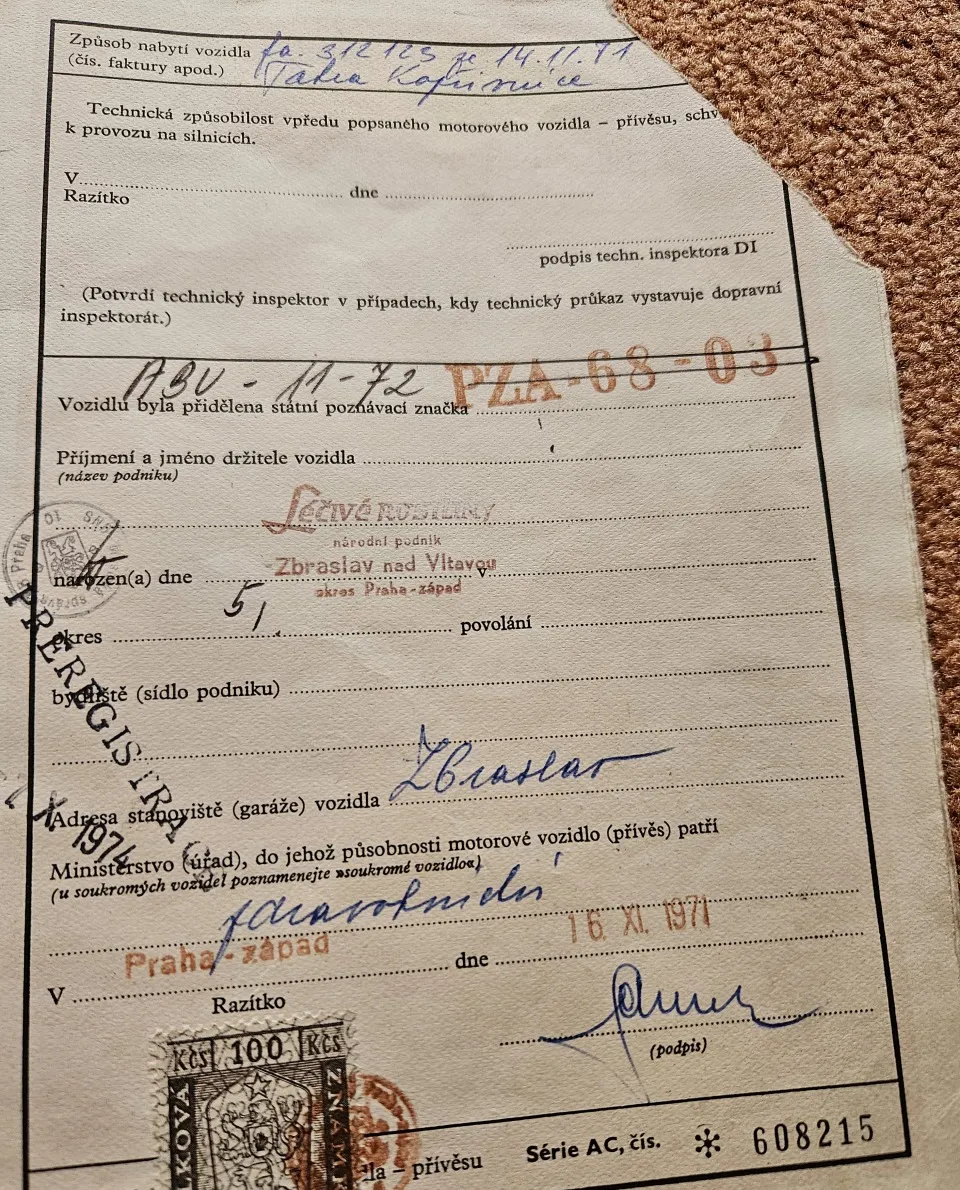 Způsob nabytí vozidla fa. 312123 ze 14.11.71
(čís. faktury apod.) Tatra Kopřivnice
Technická způsobilost vpředu popsaného motorového vozidla – přívěsu, schv
k provozu na silnicích.
V dne
Razítko
podpis techn. inspektora DI
(Potvrdí technický inspektor v případech, kdy technický průkaz vystavuje dopravní
inspektorát.)
ABU - 11-72 PZA-68-03
Vozidlu byla přidělena státní poznávací značka
Příjmení a jméno držitele vozidla
(název podniku)
Léčivé rostliny
národní podnik
Zbraslav nad Vltavou
okres Praha-západ
narozen(a) dne v
5,
okres povolání
bydliště (sídlo podniku)
PREREGISTRACE
X. 1974
Adresa stanoviště (garáže) vozidla Zbraslav
Ministerstvo (úřad), do jehož působnosti motorové vozidlo (přívěs) patří
(u soukromých vozidel poznamenejte »soukromé vozidlo«)
zdravotnictví
V Praha-západ dne 16. XI. 1971
Razítko
(podpis)
Kčs 100 Kčs
LKOVÁ
ZNÁM
dla – přívěsu Série AC, čís. * 608215